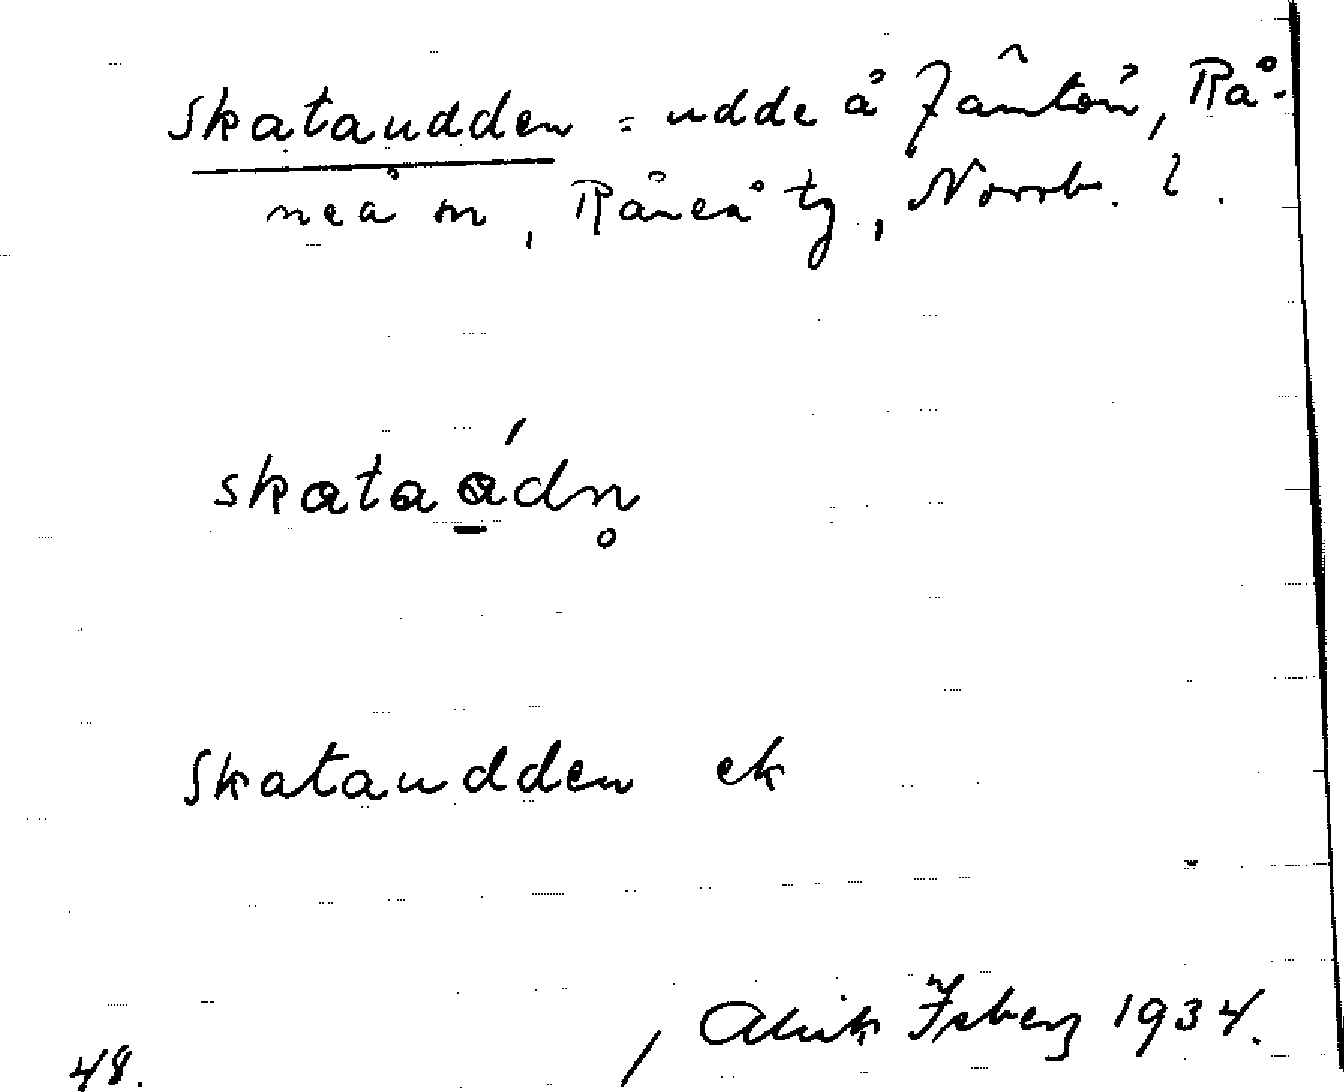 Skataudden = udde å Jämtön, Rå-
neå sn, Råneå tg, Norrb. l.
skataådn̥
Skataudden ek
Alvik Isberg 1934.
48.